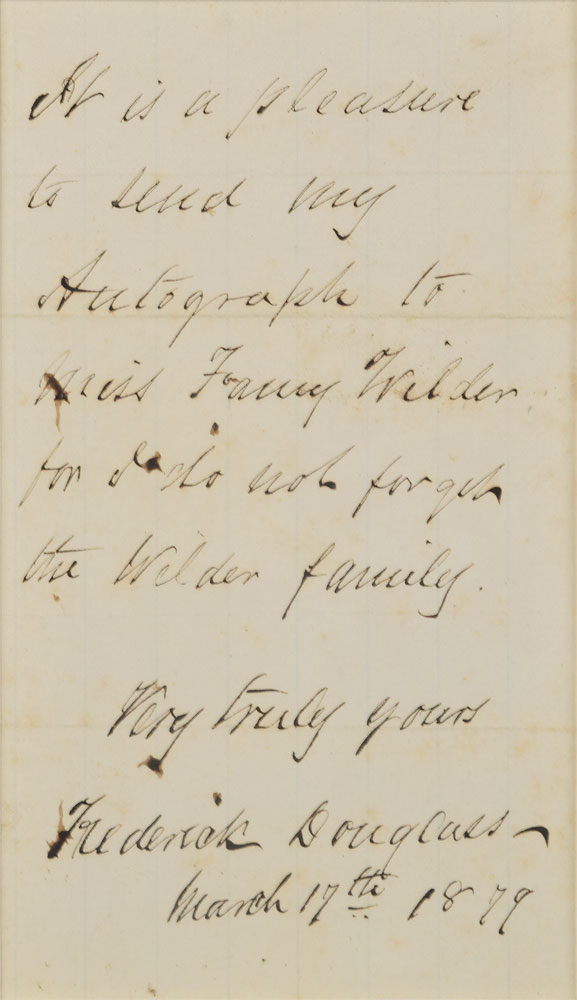 It is a pleasure
to send my
Autograph to
Miss Fanny Wilder
for I do not forget
the Wilder family.
Very truly yours
Frederick Douglass
March 17th 1879